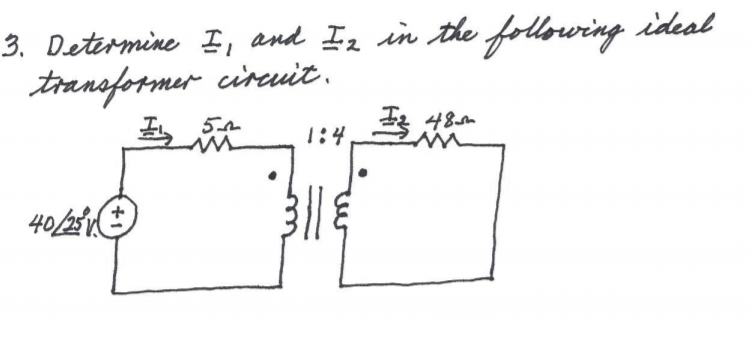 3. Determine I₁ and I₂ in the following ideal
transformer circuit.
I₁ 5Ω 1:4 I₂ 48Ω
40/25° V.